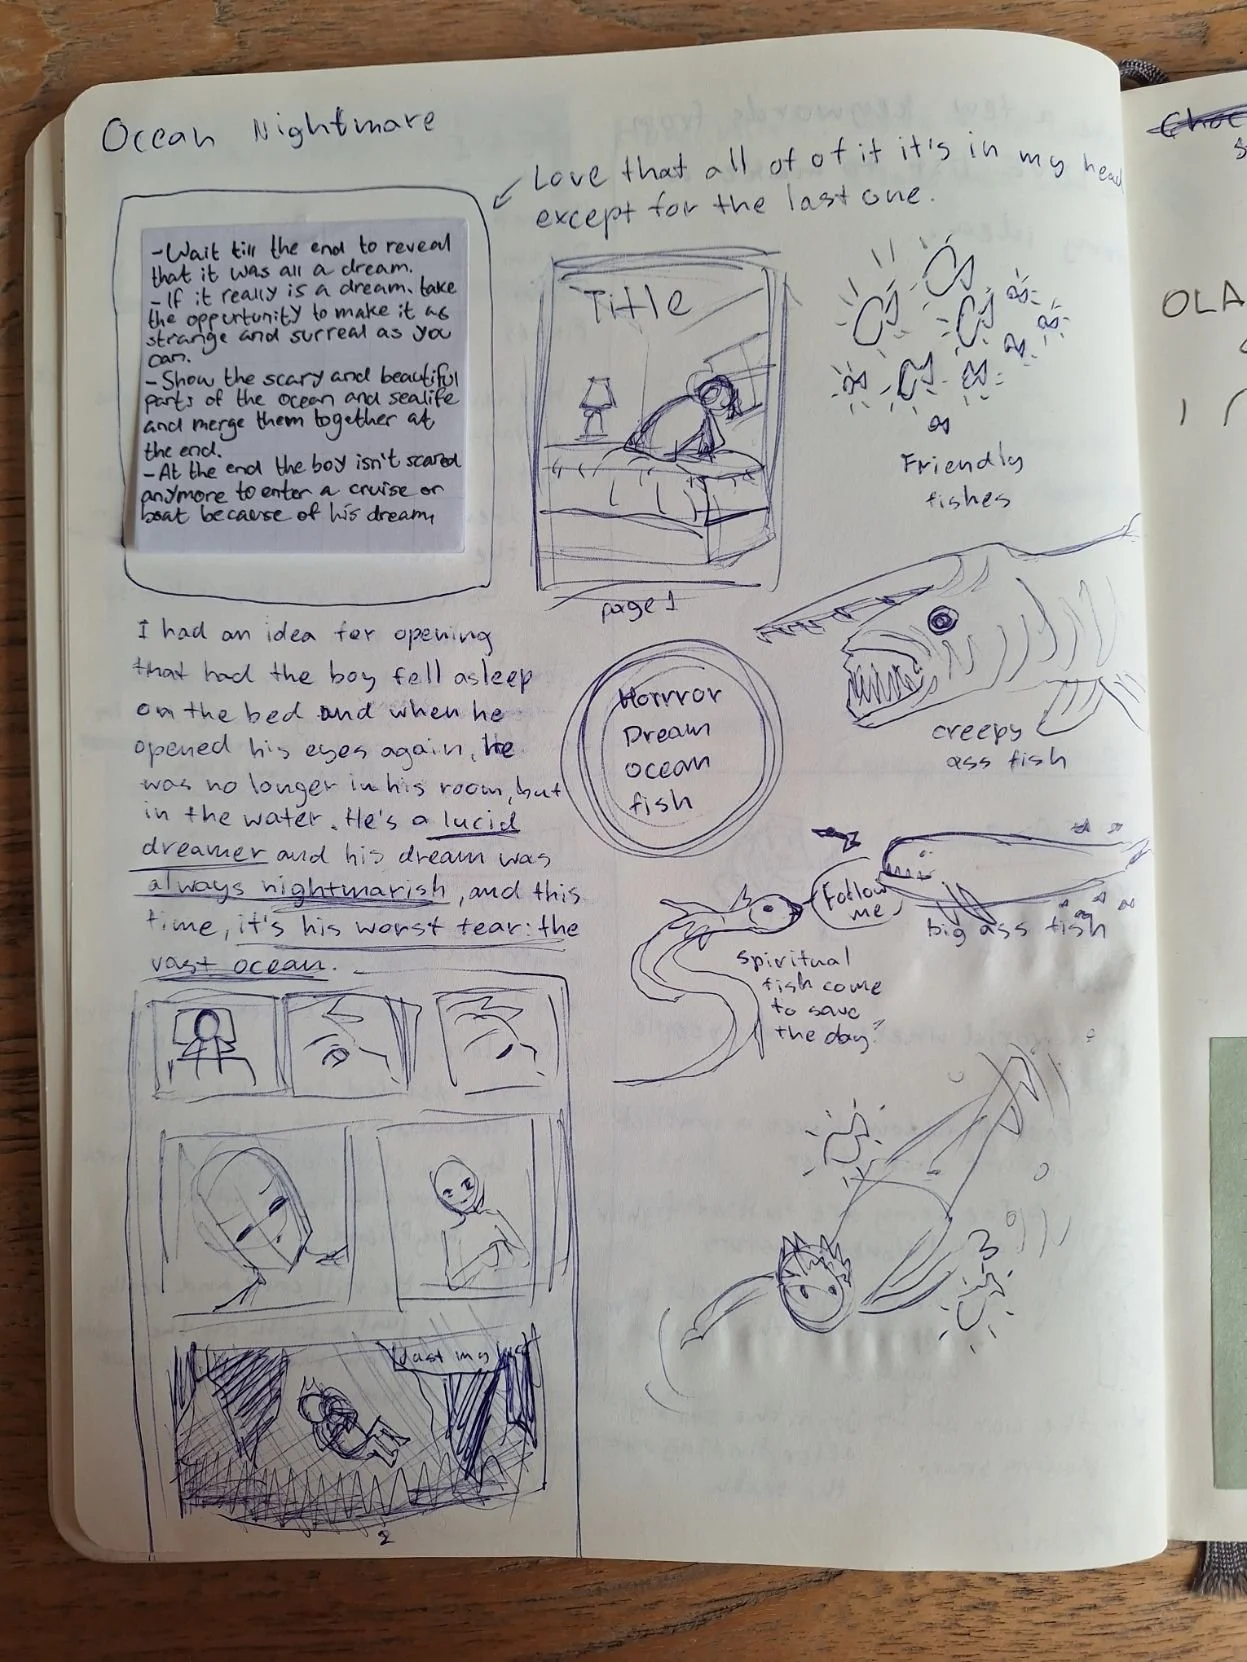 Ocean Nightmare
Love that all of of it it's in my head
except for the last one.
-Wait till the end to reveal
that it was all a dream.
-If it really is a dream. take
the oppurtunity to make it as
strange and surreal as you
can.
-Show the scary and beautiful
parts of the ocean and sealife
and merge them together at
the end.
-At the end the boy isn't scared
anymore to enter a cruise or
boat because of his dream,
Title
page 1
Friendly
fishes
creepy
ass fish
I had an idea for opening
that had the boy fell asleep
on the bed and when he
opened his eyes again, he
was no longer in his room, but
in the water. He's a lucid
dreamer and his dream was
always nightmarish, and this
time, it's his worst fear: the
vast ocean.
Horrror
Dream
ocean
fish
Follow
me
big ass fish
spiritual
fish come
to save
the day?
Just my
2
Choc
OLA